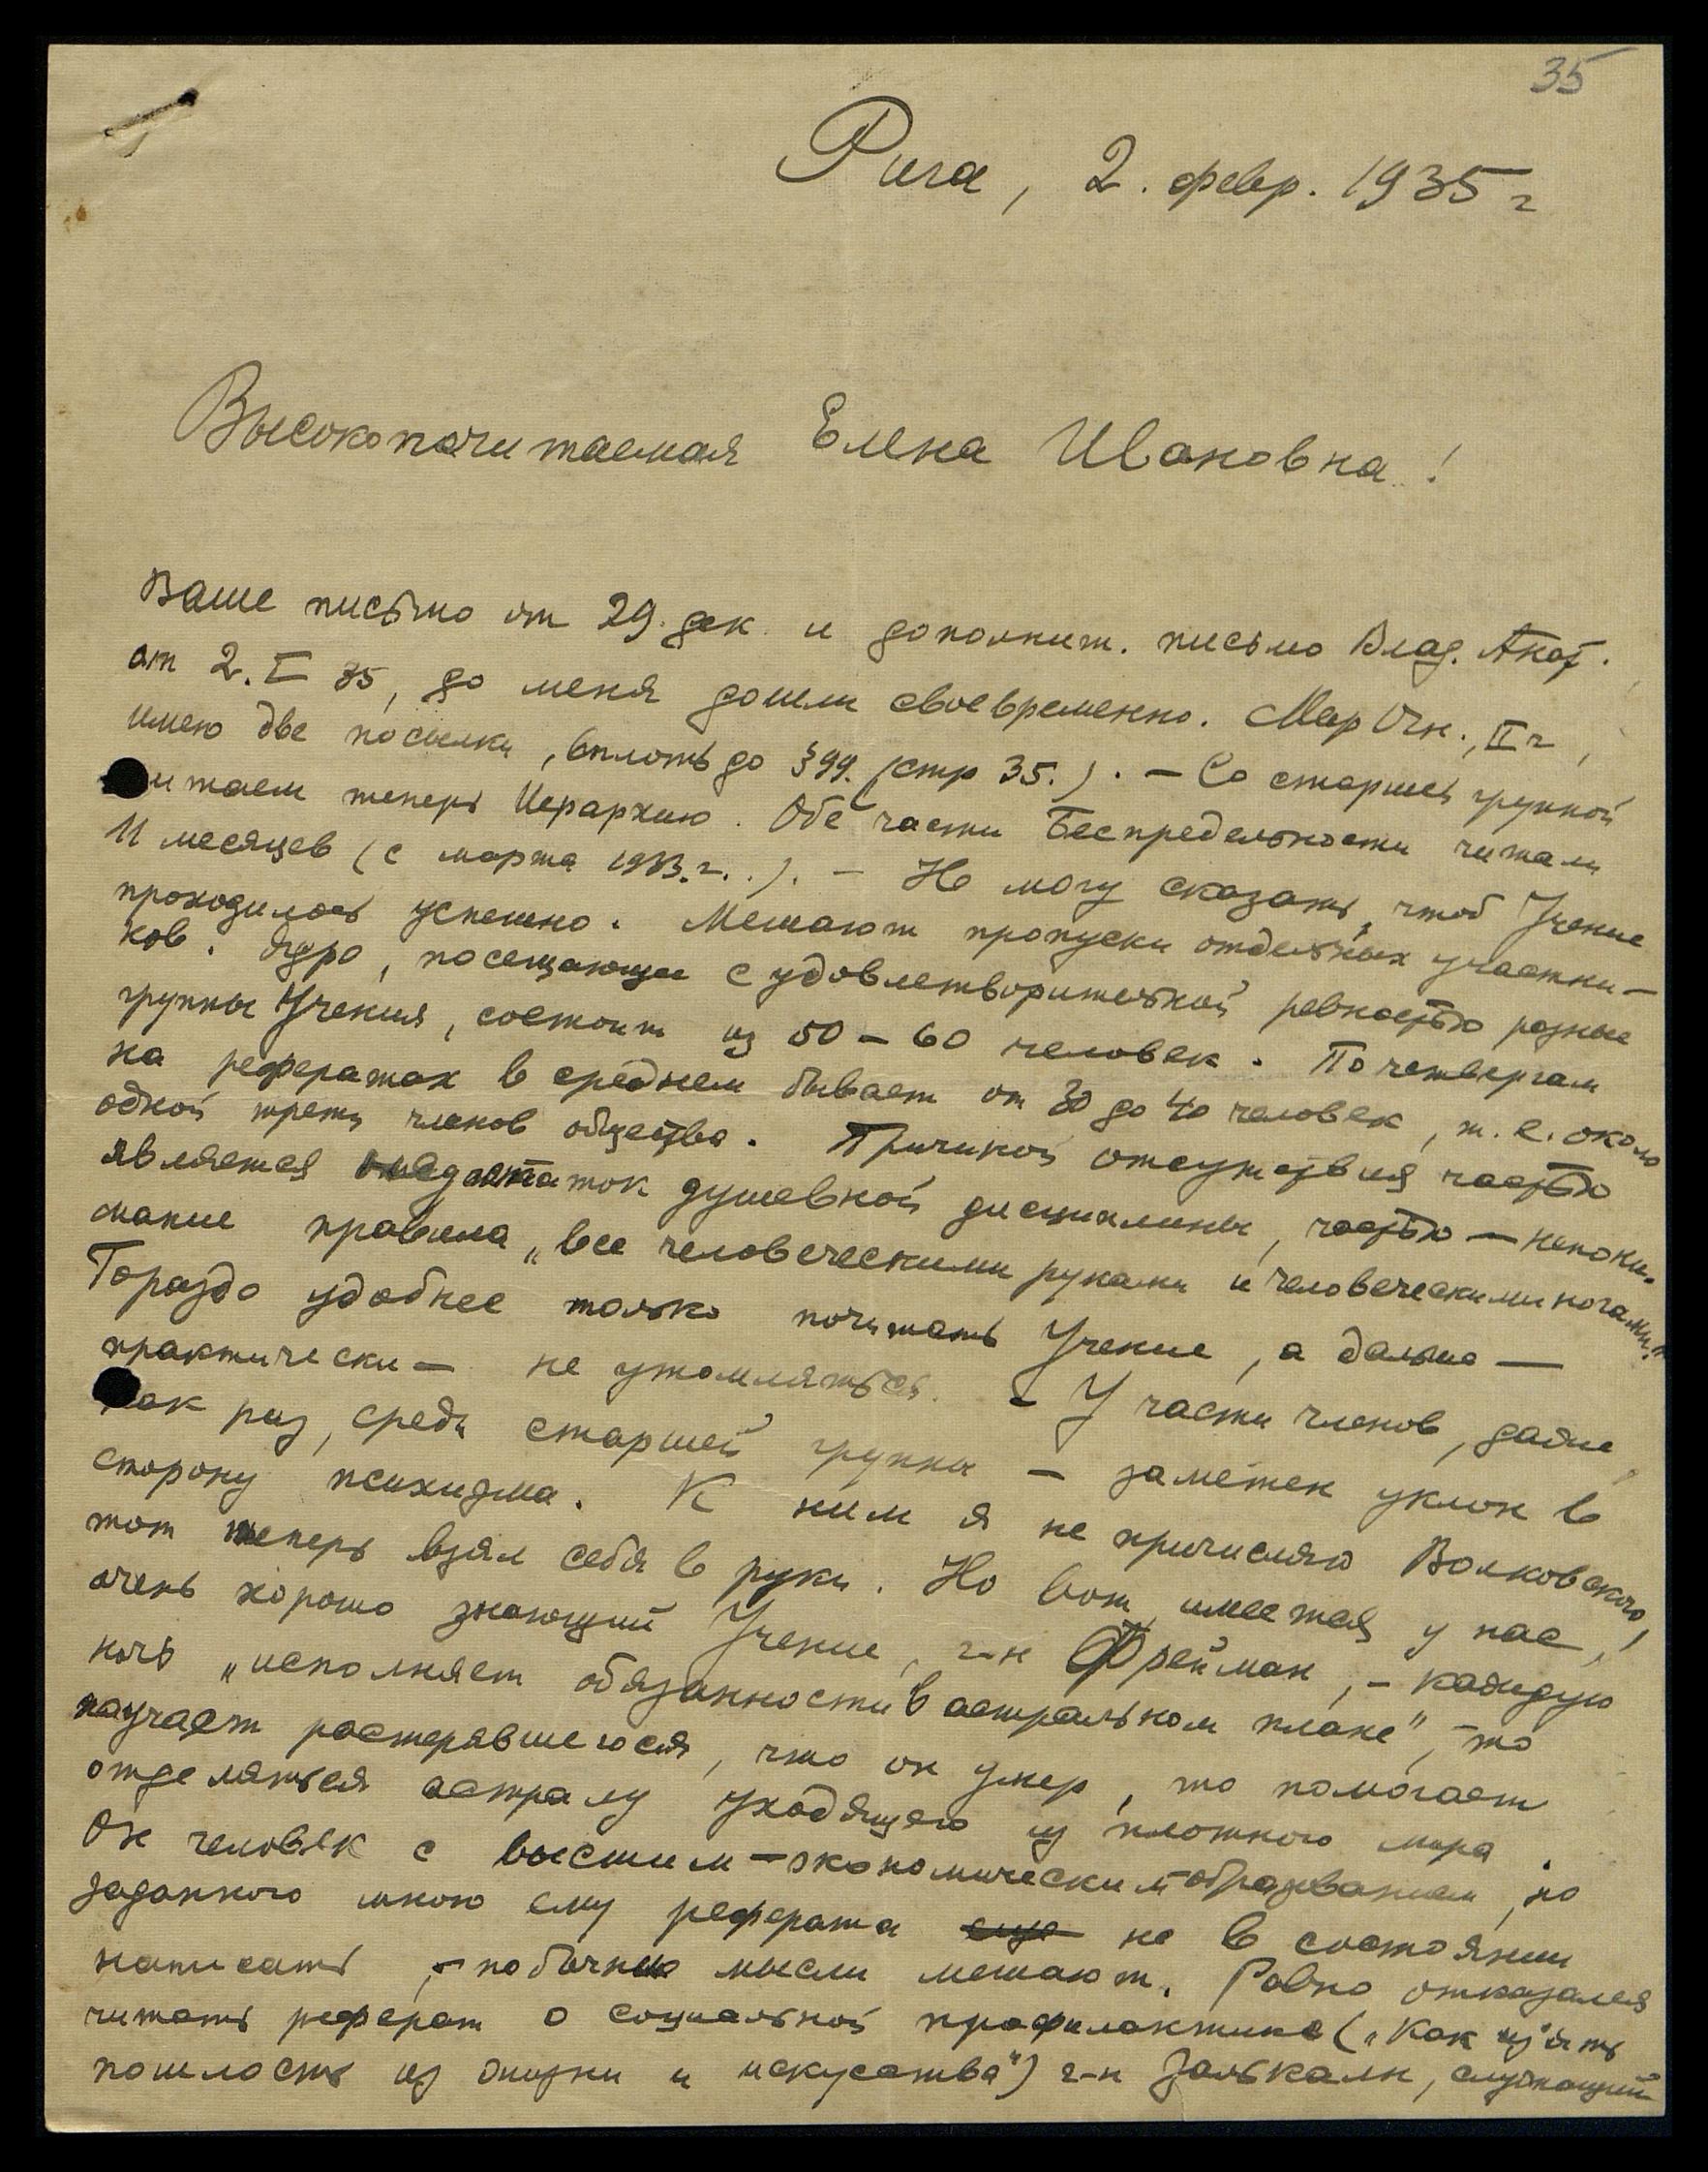 35
Рига, 2. февр. 1935 г
Высокопочитаемая Елена Ивановна!
Ваше письмо от 29. дек. и дополнит. письмо Влад. Анат.
от 2. I 35, до меня дошли своевременно. Мир Огн., II ч,
имею две посылки, вплоть до § 99. (стр 35.). — Со старшей группой
читаем теперь Иерархию. Обе части Беспредельности читали
11 месяцев (с марта 1933.г..). — Не могу сказать, чтоб Учение
проходилось успешно. Мешают пропуски отдельных участни-
ков. Ядро, посещающее с удовлетворительной ревностью разные
группы Учения, состоит из 50 – 60 человек. По четвергам
на рефератах в среднем бывает от 30 до 40 человек, т. е. около
одной трети членов общества. Причиной отсутствия частью
является недостаток душевной дисциплины, частью — непони-
мание правила „все человеческими руками и человеческими ногами".
Гораздо удобнее только почитать Учение, а дальше —
практически — не утомляться. — У части членов, даже
как раз, среди старшей группы — заметен уклон в
сторону психизма. К ним я не причисляю Волковского,
тот теперь взял себя в руки. Но вот, имеется у нас,
очень хорошо знающий Учение, г-н Фрейман, — каждую
ночь „исполняет обязанности в астральном плане", то
поучает растерявшегося, что он умер, то помогает
отделяться астралу уходящего из плотного мира.
Он человек с высшим — экономическим образованием, но
заданного мною ему реферата еще не в состоянии
написать, — побочные мысли мешают. Ровно отказался
читать реферат о социальной профилактике („Как изъять
пошлость из жизни и искусства") г-н Залькалн, служащий